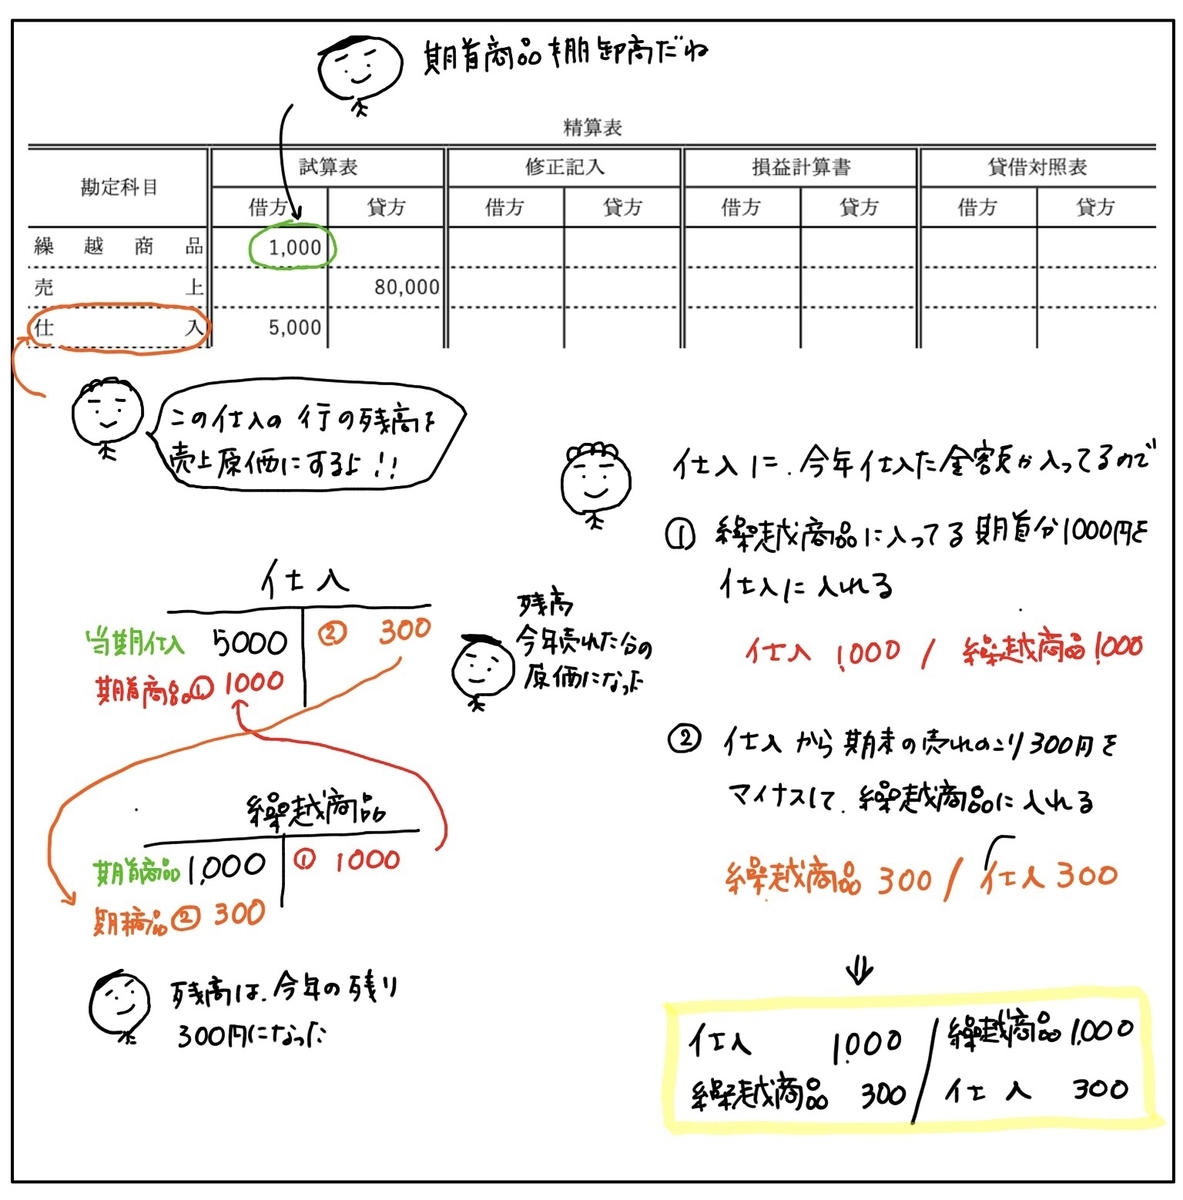 期首商品棚卸高だね
精算表
勘定科目 試算表 修正記入 損益計算書 貸借対照表
借方 貸方 借方 貸方 借方 貸方 借方 貸方
繰越商品 1,000
売上 80,000
仕入 5,000
この仕入の行の残高を
売上原価にするよ!!
仕入に、今年仕入た全額が入ってるので
① 繰越商品に入ってる期首分1000円を
仕入に入れる
仕入 1,000 / 繰越商品 1,000
② 仕入から期末の売れのこり300円を
マイナスして、繰越商品に入れる
繰越商品 300 / 仕入 300
⇓
仕入 1,000 / 繰越商品 1,000
繰越商品 300 / 仕入 300
仕入
当期仕入 5000 ② 300
期首商品① 1000
残高
今年売れた分の
原価になった
繰越商品
期首商品 1,000 ① 1000
期末商品② 300
残高は、今年の残り
300円になった